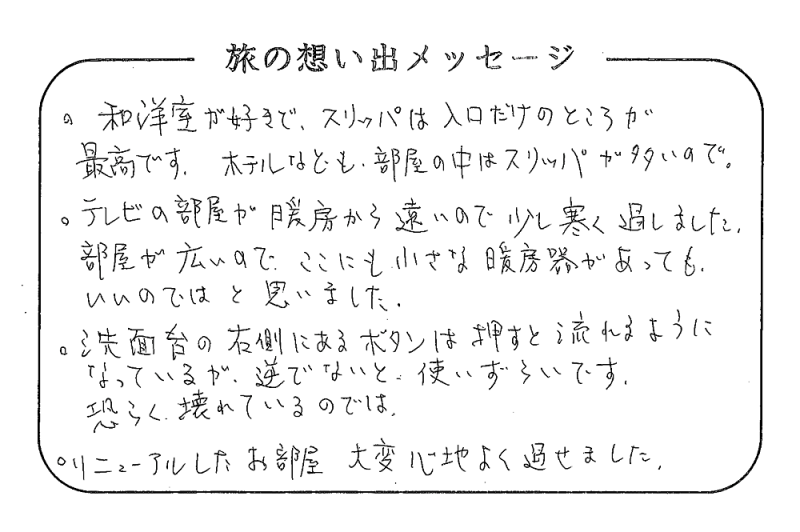 旅の想い出メッセージ
。和洋室が好きで、スリッパは入口だけのところが
最高です。ホテルなども、部屋の中はスリッパが多いので。
。テレビの部屋が暖房から遠いので少し寒く過しました。
部屋が広いので、ここにも小さな暖房器があっても、
いいのではと思いました。
。洗面台の右側にあるボタンは押すと流れるように
なっているが、逆でないと、使いずらいです。
恐らく、壊れているのでは。
。リニューアルしたお部屋 大変心地よく過せました。